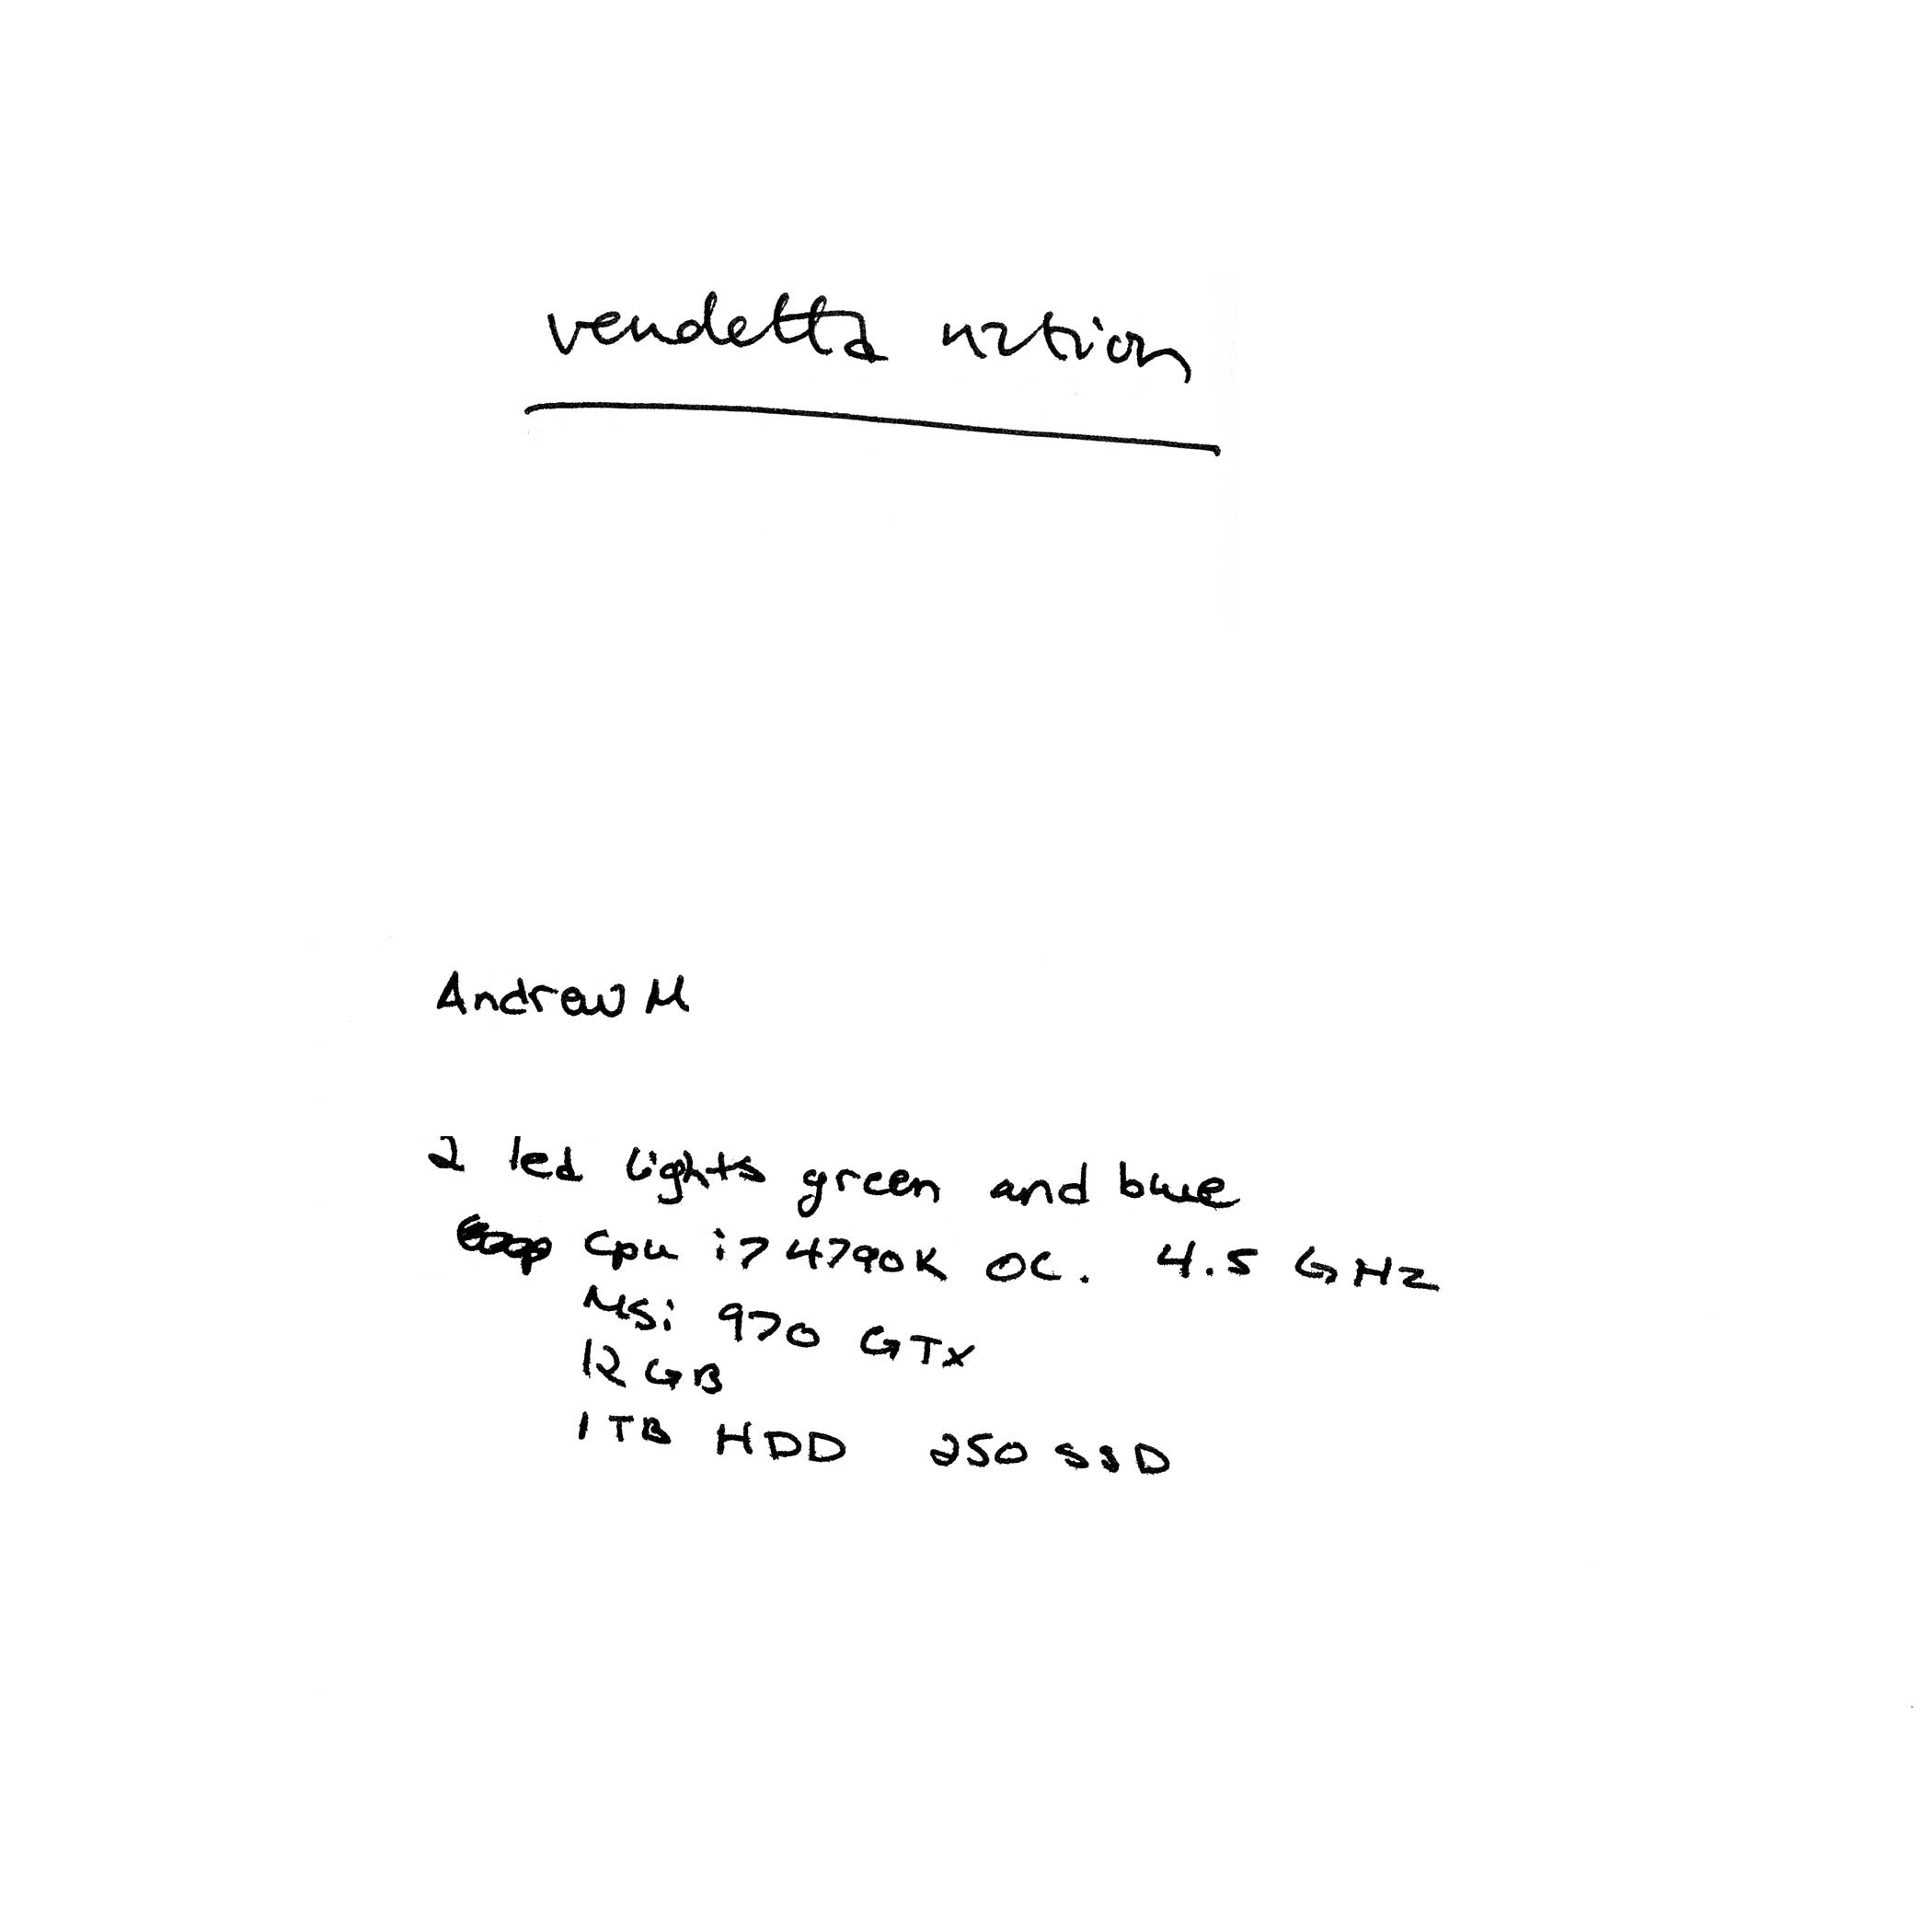 vendetta nation
Andrew M
2 led lights green and blue
cpu i7 4790K OC. 4.5 GHz
MSi 970 GTX
12 GB
1TB HDD 250 SSD